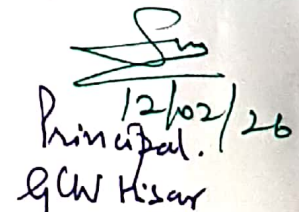 12/02/26
Principal.
GCW Hisar